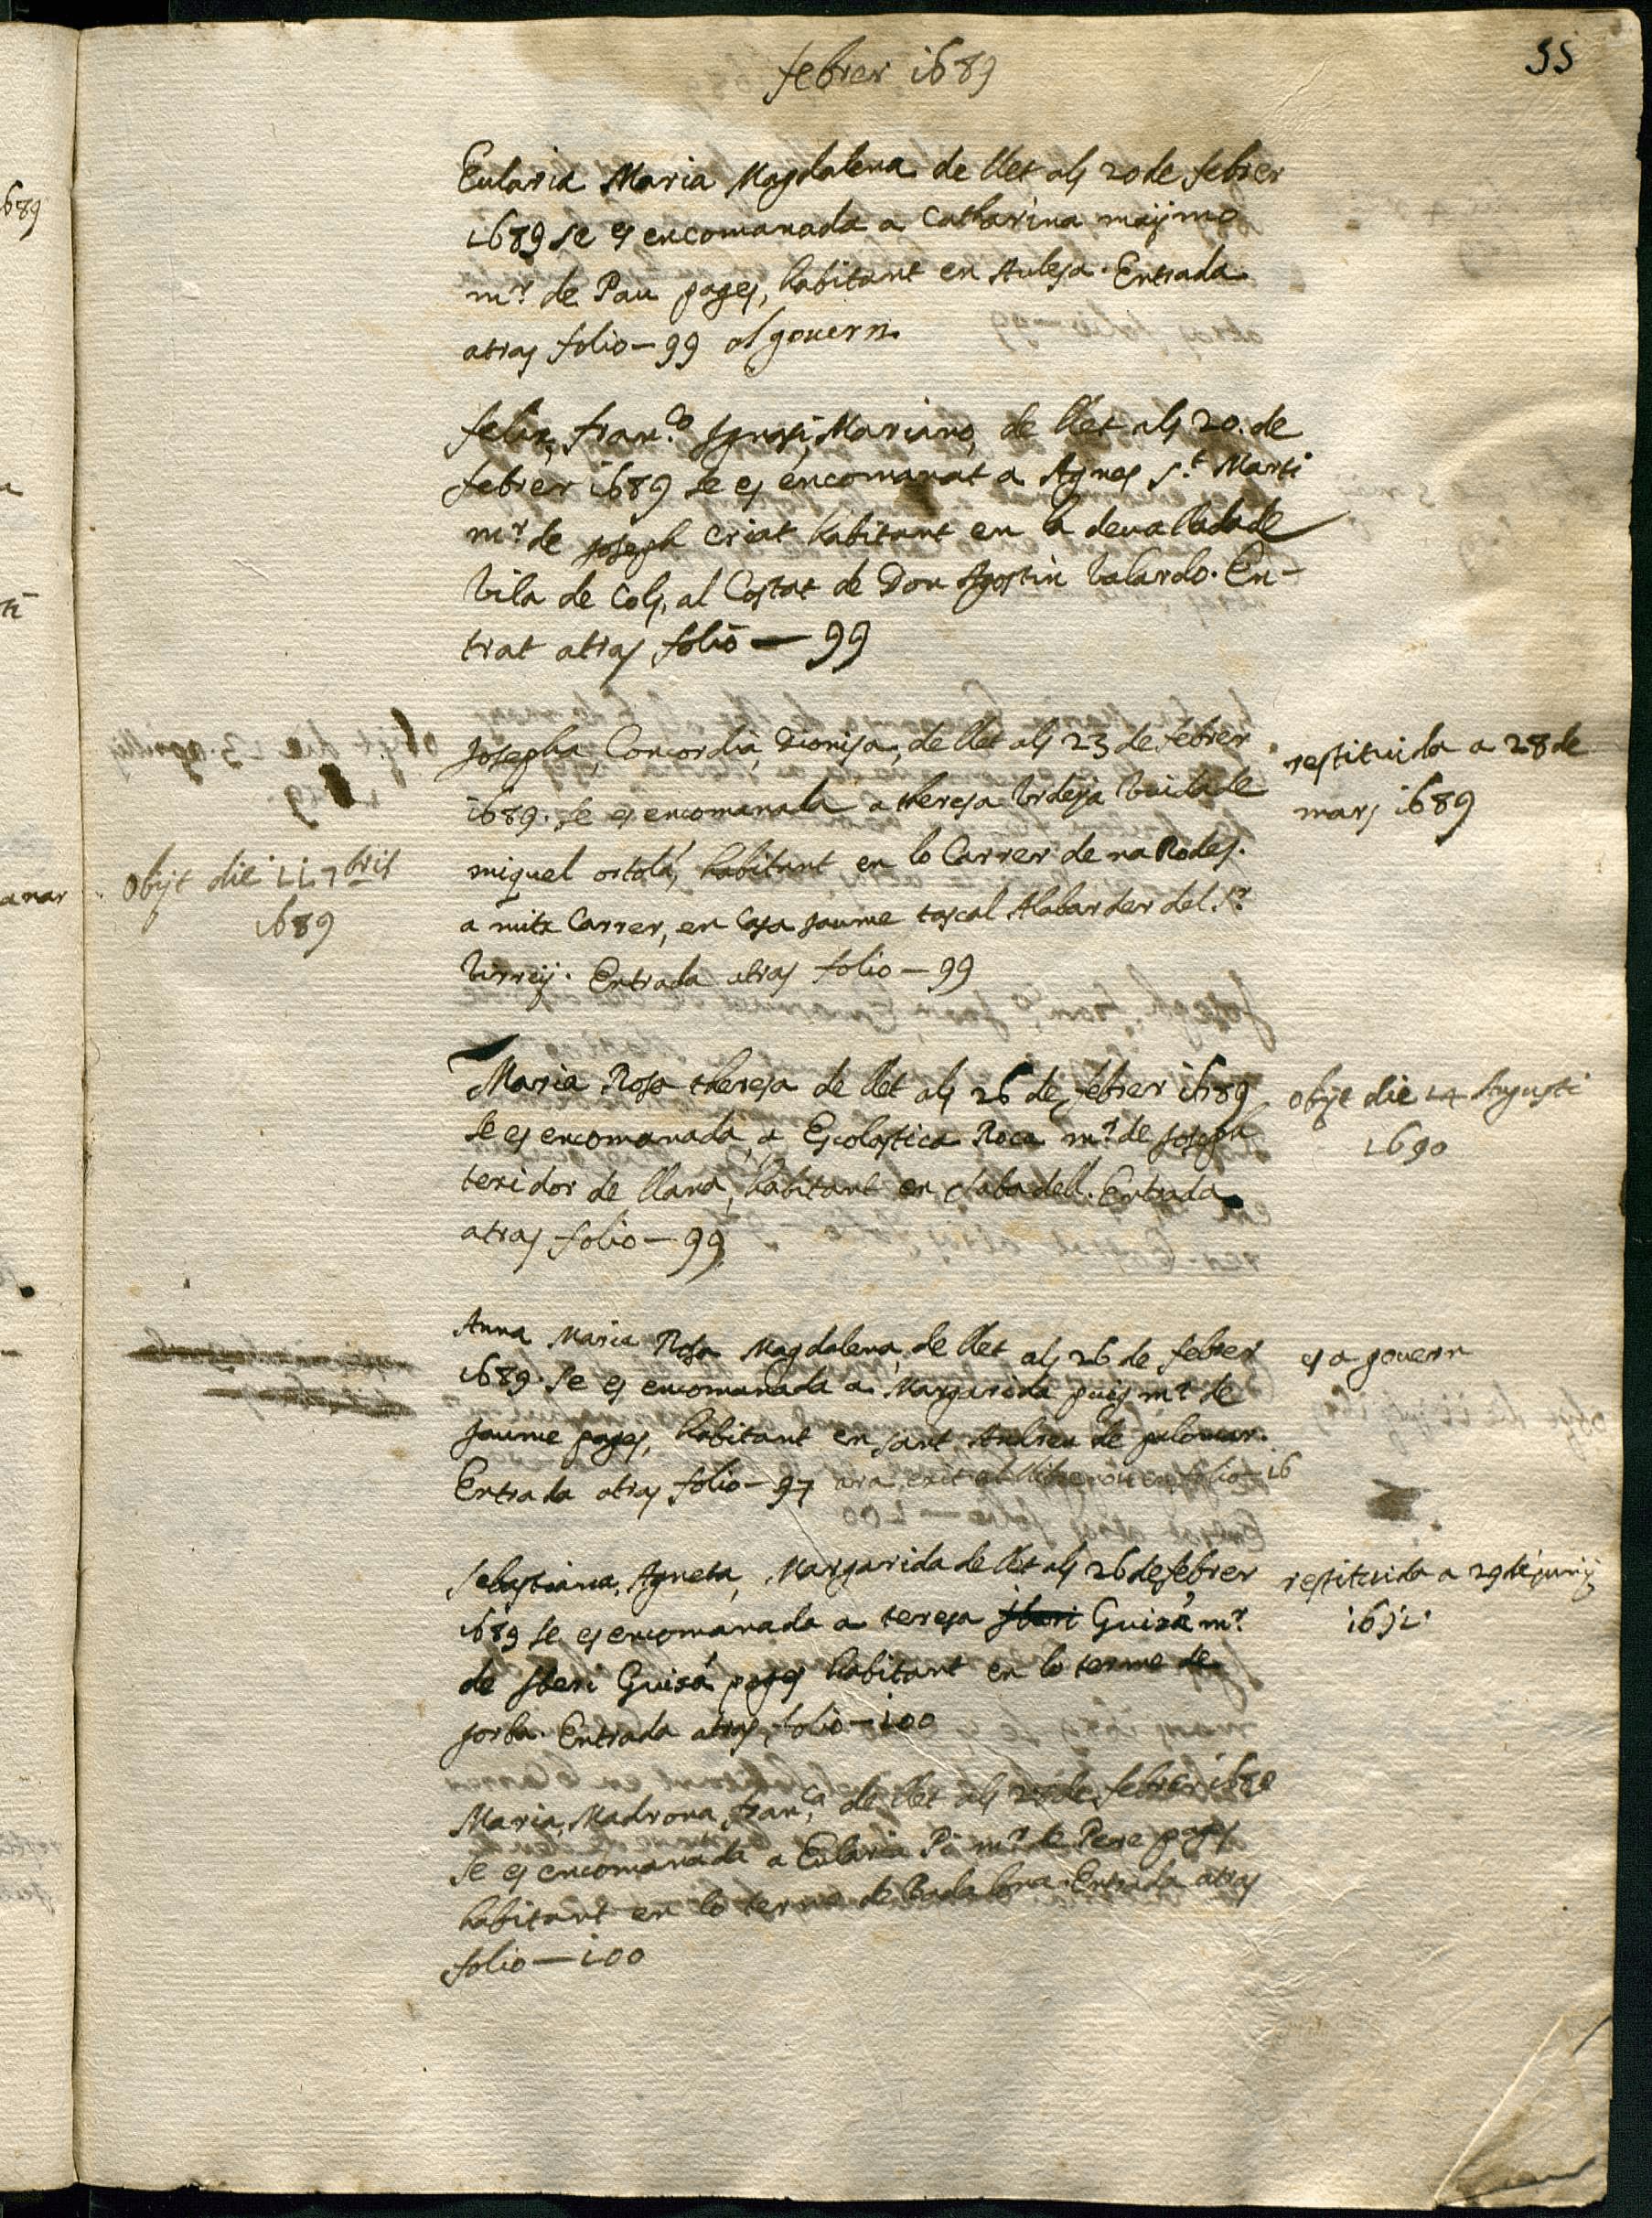 febrer 1689
55
Eularia Maria Magdalena de llet als 20 de febrer
1689 se es encomanada a Catharina maymo
mr. de Pau pages, habitant en Aulesa. Entrada
atras folio - 99 al govern
felix, franco. Ignasi, Mariano, de llet als 20. de
febrer 1689 se es encomanat a Agnes St. Marti
mr. de Joseph criat habitant en la devallada de
Vila de Cols, al Costat de Don Agostin Valardo. En-
trat atras folio — 99
Josepha, Concordia, Dionisa, de llet als 23 de febrer
1689. se es encomanada a theresa Vrdeya Viuda de
miquel ortolá, habitant en lo Carrer de na Rodes.
a mitx Carrer, en Casa Jaume tascal Alabarder del Sr.
Virrey. Entrada atras folio - 99
restituida a 28 de
mars 1689
obijt die 11 7bris
1689
Maria Rosa theresa de llet als 26 de febrer 1689
se es encomanada, a Escolastica Roca mr. de Joseph
teridor de llana, habitant en Sabadell. Entrada
atras folio - 99
obijt die 14 Augusti
1690
Anna Maria Rosa Magdalena, de llet als 26 de febrer
1689. se es encomanada a Margarida puig mr. de
Jaume pages, habitant en sant Andreu de palomar.
Entrada atras folio - 97 ara es al llibre nou en folio - 16
es a govern
Sebastiana, Agneta, Margarida de llet als 26 de febrer
1689 se es encomanada a teresa Guixá mr.
de Steri Guixá pages habitant en lo terme de
Jorba. Entrada atras, folio - 100
restituida a 29 de juny
1691
Maria, Madrona, franca. de llet als 28 de febrer 1689
se es encomanada a Eularia Pi mr. de Pere pages
habitant en lo terme de Badalona. Entrada atras
folio - 100